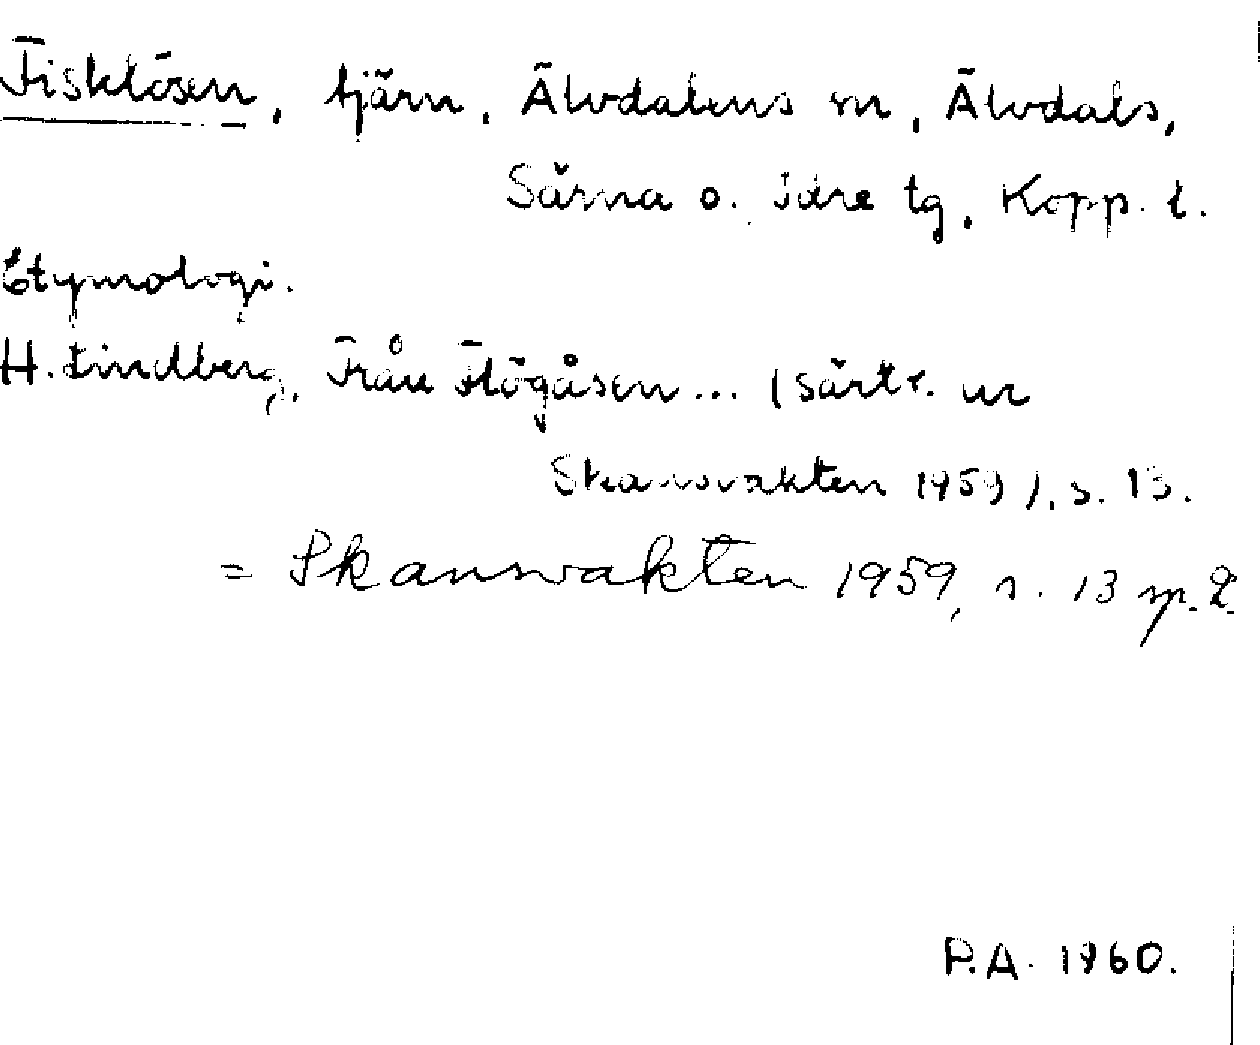 Fisklösen, tjärn, Älvdalens sn, Älvdals,
Särna o. Idre tg, Kopp. l.
Etymologi.
H. Lindberg, Från Flögåsen... (särtr. ur
Skansvakten 1959), s. 13.
= Skansvakten 1959, s. 13 sp. 2.
P.A. 1960.